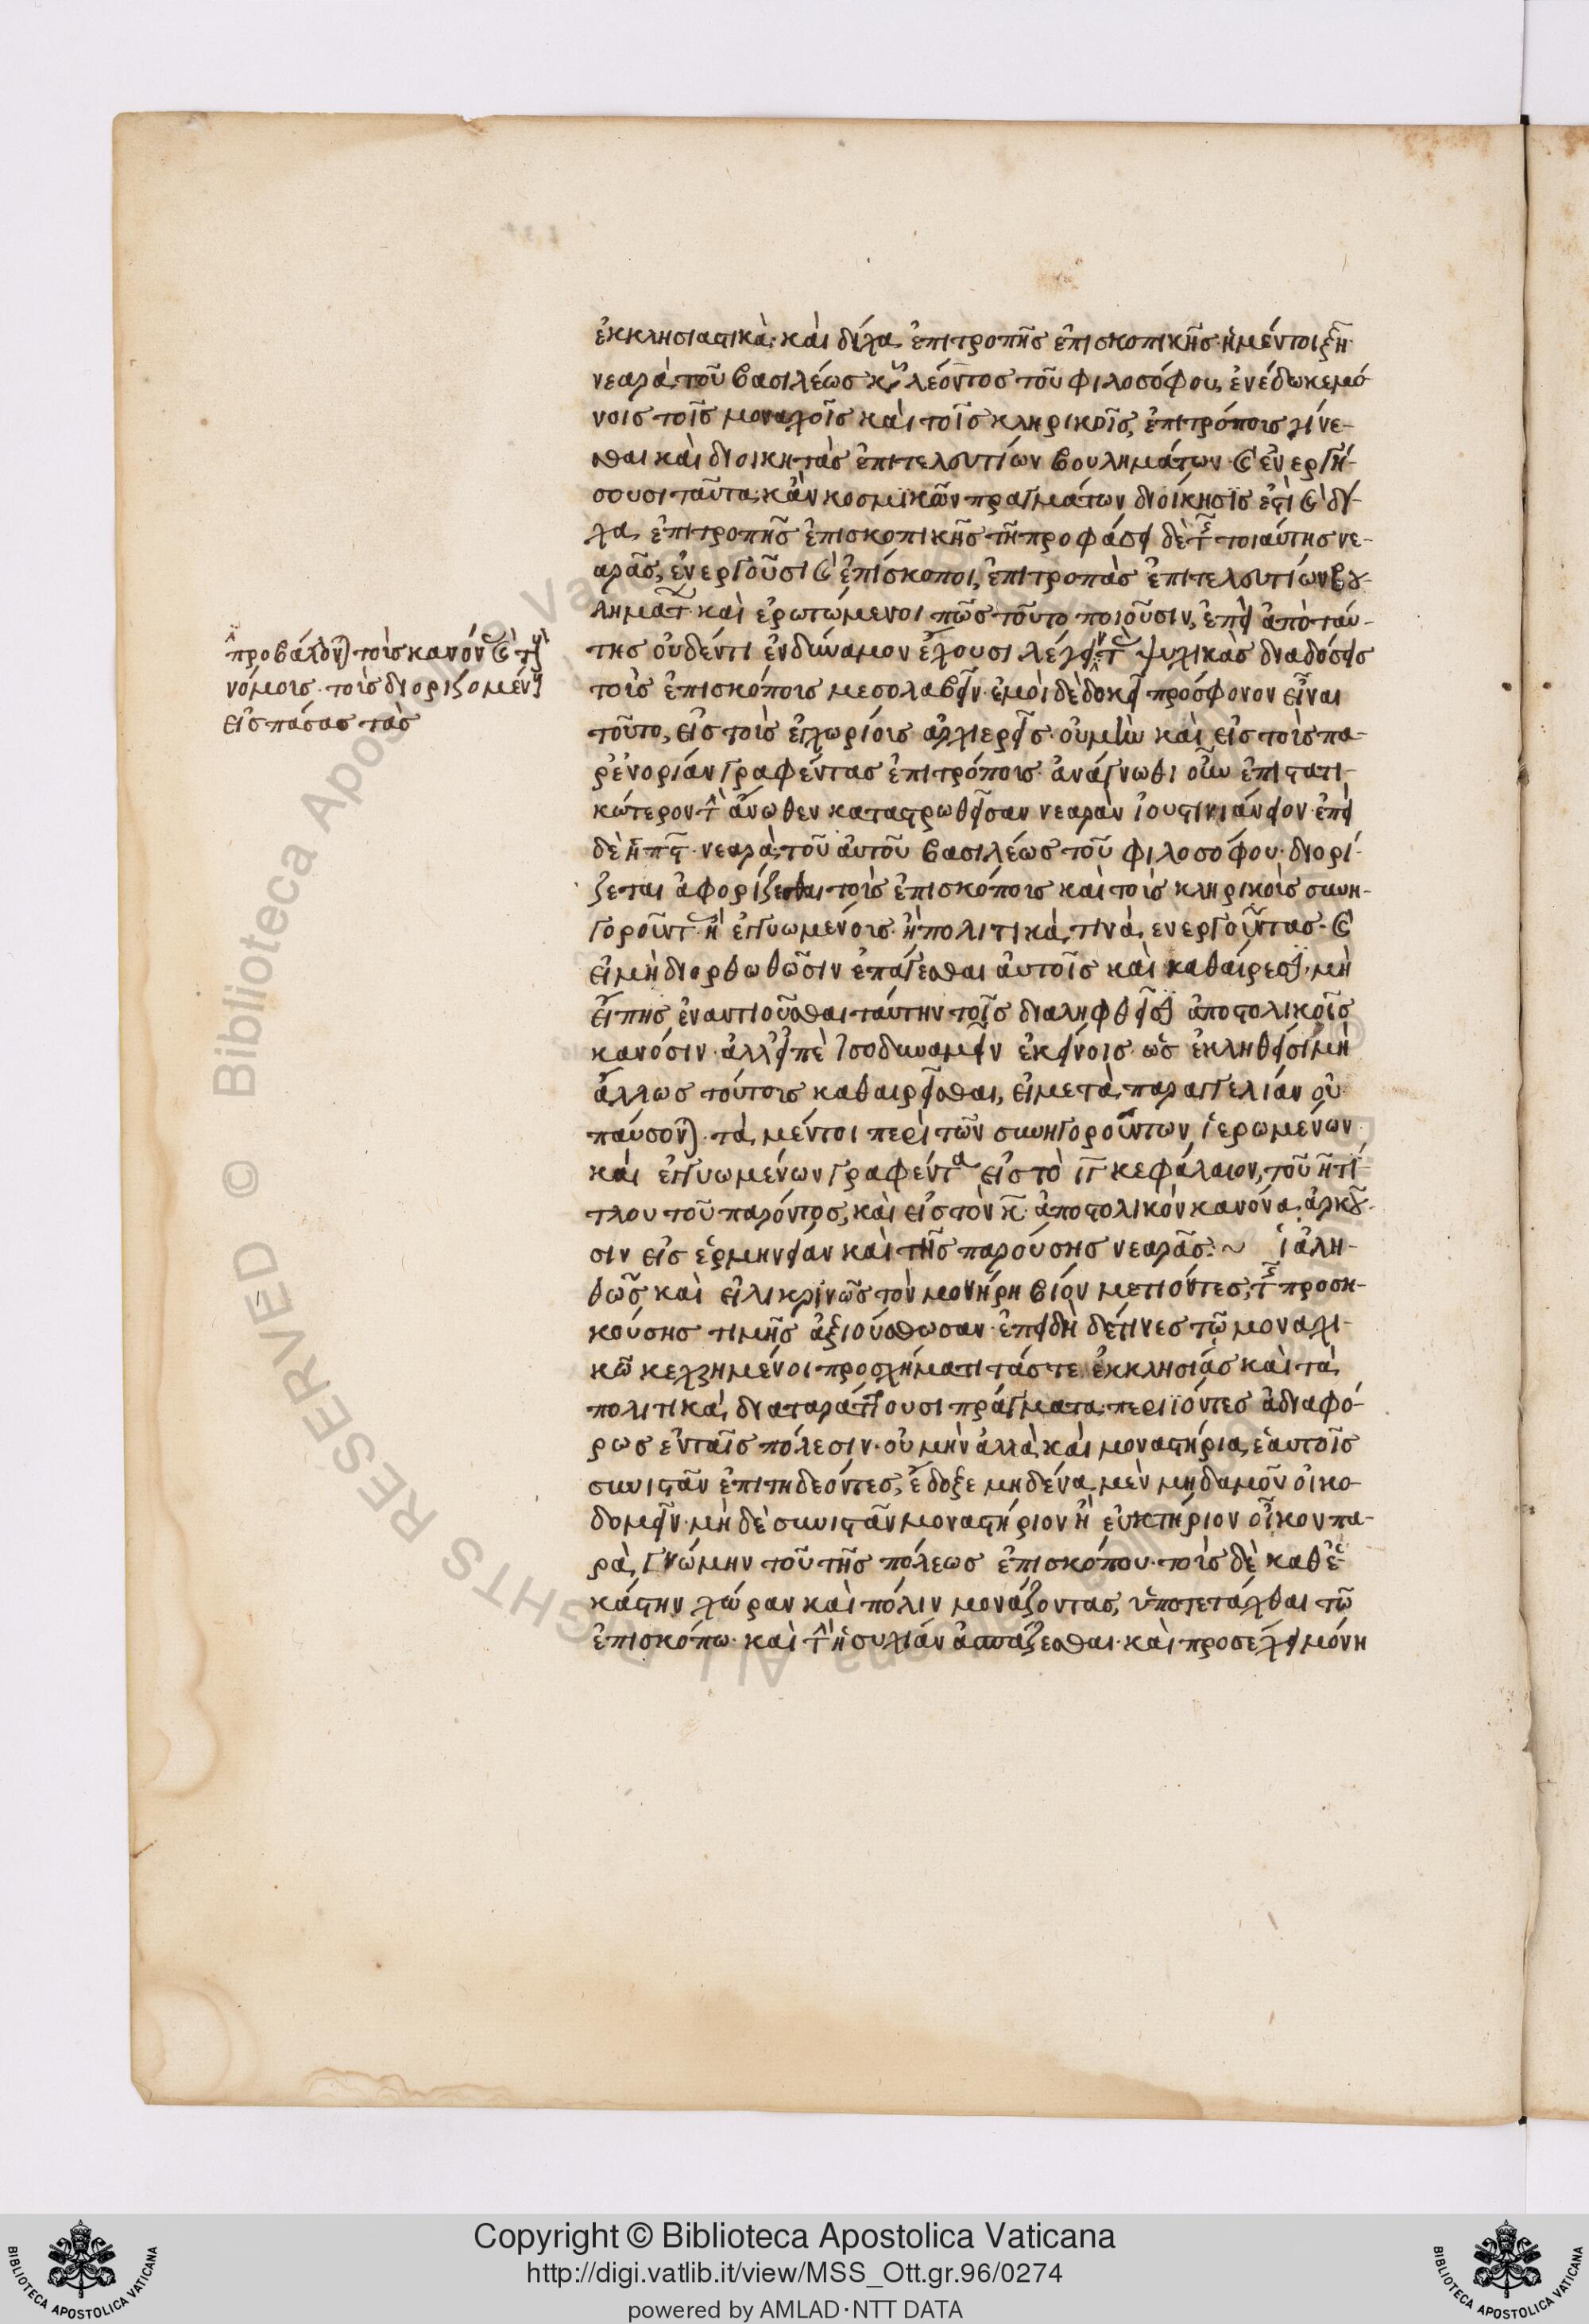 ἐκκλησιαστικὰ· καὶ δίχα ἐπιτροπῆς ἐπισκοπικῆς· ἡ μέντοι ξη
νεαρὰ τοῦ βασιλέως κυρ λέοντος τοῦ φιλοσόφου, ἐνέδωκε μό-
νοις τοῖς μοναχοῖς καὶ τοῖς κληρικοῖς, ἐπιτρόπους γίνε-
σθαι καὶ διοικητὰς ἐπιτελευτίων βουλημάτων· καὶ ἐνεργή-
σουσι ταῦτα, κἂν κοσμικῶν πραγμάτων διοίκησις ἐστὶ καὶ δί-
χα ἐπιτροπῆς ἐπισκοπικῆς τῇ προφάσει δὲ τῆς τοιαύτης νε-
αρᾶς, ἐνεργοῦσι καὶ ἐπίσκοποι, ἐπιτροπὰς ἐπιτελευτίων βου-
λημάτ καὶ ἐρωτώμενοι πῶς τοῦτο ποιοῦσιν, ἐπεὶ ἀπὸ ταύ-
της οὐδέν τι ἐνδύναμον ἔχουσι λέγειν τ ψυχικὰς διαδόσεις
τοὺς ἐπισκόπους μεσολαβεῖν· ἐμοὶ δὲ δοκεῖ πρόσφορον εἶναι
τοῦτο, εἰς τοὺς ἐγχωρίους ἀρχιερεῖς· οὐ μὴν καὶ εἰς τοὺς πα-
ρενορίαν γραφέντας ἐπιτρόπους· ἀνάγνωθι οὖν ἐπιστατι-
κώτερον τὴν ἄνωθεν καταστρωθεῖσαν νεαρὰν ἰουστινιάνειον· ἐπεὶ
δὲ ἡ πς νεαρὰ τοῦ αὐτοῦ βασιλέως τοῦ φιλοσόφου· διορί-
ζεται ἀφορίζεσθαι τοὺς ἐπισκόπους καὶ τοὺς κληρικοὺς συνη-
γοροῦντ ἢ ἐγγυωμένους· ἢ πολιτικά τινα ἐνεργοῦντας· καὶ
εἰ μὴ διορθωθῶσιν ἐπάγεσθαι αὐτοῖς καὶ καθαίρεσιν, μὴ
εἴπῃς ἐναντιοῦσθαι ταύτην τοῖς διαληφθεῖσιν ἀποστολικοῖς
κανόσιν· ἀλλ' εἰπὲ ἰσοδυναμεῖν ἐκείνοις· ὡς ἐκληθεῖσι μὴ
ἄλλως τούτους καθαιρεῖσθαι, εἰ μετὰ παραγγελίαν οὐ
παύσονται. τὰ μέντοι περὶ τῶν συνηγορούντων ἱερωμένων
καὶ ἐγγυωμένων γραφέντα εἰς τὸ ιγ κεφάλαιον, τοῦ η τί-
τλου τοῦ παρόντος, καὶ εἰς τὸν κ ἀποστολικὸν κανόνα ἀρκοῦ-
σιν εἰς ἑρμηνείαν καὶ τῆς παρούσης νεαρᾶς:~ ἱ ἀλη-
θῶς καὶ εἰλικρινῶς τὸν μονήρη βίον μετιόντες, τῆς προση-
κούσης τιμῆς ἀξιούσθωσαν· ἐπειδὴ δέ τινες τῷ μοναχι-
κῷ κεχρημένοι προσχήματι τάς τε ἐκκλησίας καὶ τὰ
πολιτικὰ διαταράττουσι πράγματα, περιϊόντες ἀδιαφό-
ρως ἐν ταῖς πόλεσιν· οὐ μὴν ἀλλὰ καὶ μοναστήρια ἑαυτοῖς
συνιστᾶν ἐπιτηδεύοντες, ἔδοξε μηδένα μὲν μηδαμοῦ οἰκο-
δομεῖν· μὴ δὲ συνιστᾶν μοναστήριον ἢ εὐκτήριον οἶκον πα-
ρὰ γνώμην τοῦ τῆς πόλεως ἐπισκόπου· τοὺς δὲ καθ' ἑ-
κάστην χώραν καὶ πόλιν μονάζοντας, ὑποτετάχθαι τῷ
ἐπισκόπῳ· καὶ τὴν ἡσυχίαν ἀσπάζεσθαι· καὶ προσέχειν μόνῃ
προβάλλονται τοὺς κανόν καὶ τοὺς
νόμους· τοὺς διοριζομένους
εἰς πάσας τὰς
Copyright © Biblioteca Apostolica Vaticana
http://digi.vatlib.it/view/MSS_Ott.gr.96/0274
powered by AMLAD·NTT DATA
BIBLIOTECA APOSTOLICA VATICANA
BIBLIOTECA APOSTOLICA VATICANA